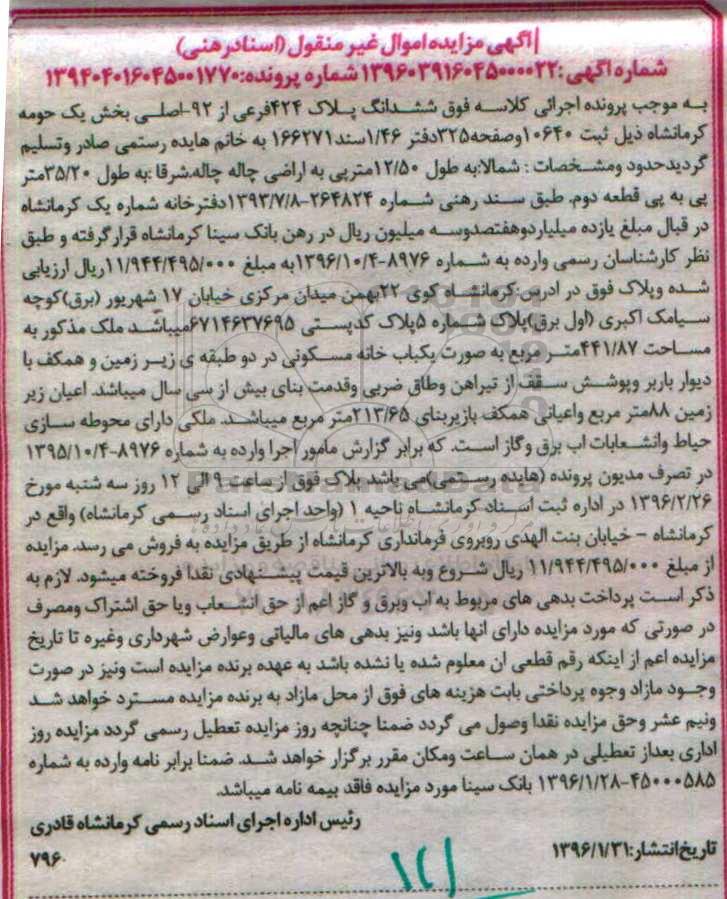 آگهی مزایده اموال غیر منقول (اسناد رهنی)
شماره آگهی: ۱۳۹۶۰۳۹۱۶۰۴۵۰۰۰۰۲۲ شماره پرونده: ۱۳۹۴۰۴۰۱۶۰۴۵۰۰۱۷۷۰
به موجب پرونده اجرائی کلاسه فوق ششدانگ پلاک ۴۲۴فرعی از ۹۲-اصلی بخش یک حومه
کرمانشاه ذیل ثبت ۱۰۶۴۰وصفحه۳۲۵دفتر ۱/۴۶سند۱۶۶۲۷۱ به خانم هایده رستمی صادر وتسلیم
گردیدحدود ومشخصات : شمالا:به طول ۱۲/۵۰مترپی به اراضی چاله چاله.شرقا :به طول ۳۵/۲۰متر
پی به پی قطعه دوم. طبق سند رهنی شماره ۲۶۴۸۲۴-۱۳۹۳/۷/۸دفترخانه شماره یک کرمانشاه
در قبال مبلغ یازده میلیاردوهفتصدوسه میلیون ریال در رهن بانک سینا کرمانشاه قرارگرفته و طبق
نظر کارشناسان رسمی وارده به شماره ۸۹۷۶-۱۳۹۶/۱۰/۴به مبلغ ۱۱/۹۴۴/۴۹۵/۰۰۰ریال ارزیابی
شده وپلاک فوق در ادرس:کرمانشاه کوی ۲۲بهمن میدان مرکزی خیابان ۱۷ شهریور (برق)کوچه
سیامک اکبری (اول برق)پلاک شماره ۵پلاک کدپستی ۶۷۱۴۶۳۷۶۹۵میباشد ملک مذکور به
مساحت ۴۴۱/۸۷متر مربع به صورت یکباب خانه مسکونی در دو طبقه ی زیر زمین و همکف با
دیوار باربر وپوشش سقف از تیراهن وطاق ضربی وقدمت بنای بیش از سی سال میباشد. اعیان زیر
زمین ۸۸متر مربع واعیانی همکف بازیربنای ۲۱۳/۶۵متر مربع میباشد. ملکی دارای محوطه سازی
حیاط وانشعابات اب برق وگاز است. که برابر گزارش مامور اجرا وارده به شماره ۸۹۷۶-۱۳۹۵/۱۰/۴
در تصرف مدیون پرونده (هایده رستمی)می باشد پلاک فوق از ساعت ۹ الی ۱۲ روز سه شنبه مورخ
۱۳۹۶/۲/۲۶ در اداره ثبت اسناد کرمانشاه ناحیه ۱ (واحد اجرای اسناد رسمی کرمانشاه) واقع در
کرمانشاه - خیابان بنت الهدی روبروی فرمانداری کرمانشاه از طریق مزایده به فروش می رسد. مزایده
از مبلغ ۱۱/۹۴۴/۴۹۵/۰۰۰ ریال شروع وبه بالاترین قیمت پیشنهادی نقدا فروخته میشود. لازم به
ذکر است پرداخت بدهی های مربوط به اب وبرق و گاز اعم از حق انشعاب ویا حق اشتراک ومصرف
در صورتی که مورد مزایده دارای انها باشد ونیز بدهی های مالیاتی وعوارض شهرداری وغیره تا تاریخ
مزایده اعم از اینکه رقم قطعی ان معلوم شده یا نشده باشد به عهده برنده مزایده است ونیز در صورت
وجود مازاد وجوه پرداختی بابت هزینه های فوق از محل مازاد به برنده مزایده مسترد خواهد شد
ونیم عشر وحق مزایده نقدا وصول می گردد ضمنا چنانچه روز مزایده تعطیل رسمی گردد مزایده روز
اداری بعداز تعطیلی در همان ساعت ومکان مقرر برگزار خواهد شد. ضمنا برابر نامه وارده به شماره
۴۵۰۰۰۵۸۵-۱۳۹۶/۱/۲۸ بانک سینا مورد مزایده فاقد بیمه نامه میباشد.
رئیس اداره اجرای اسناد رسمی کرمانشاه قادری
تاریخ انتشار:۱۳۹۶/۱/۳۱
۷۹۶